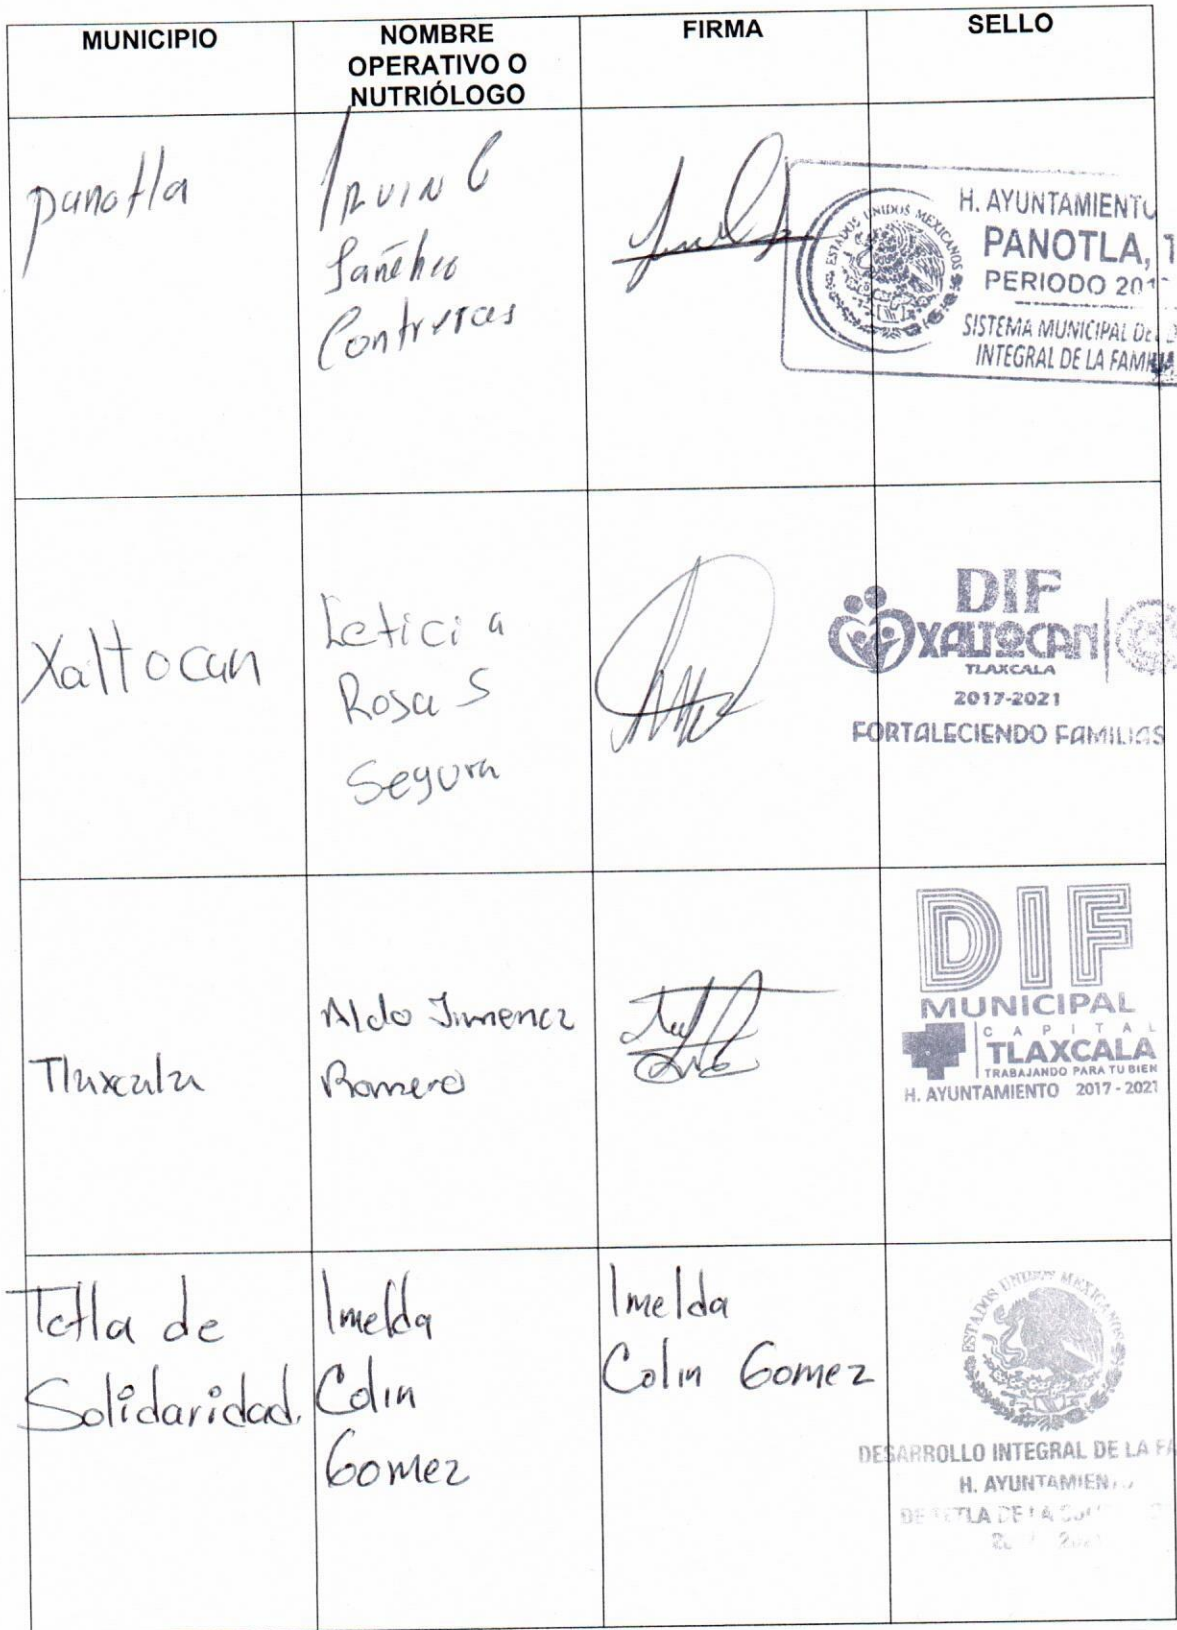 MUNICIPIO
NOMBRE
OPERATIVO O
NUTRIÓLOGO
FIRMA
SELLO
panotla
Contreras
ESTADOS UNIDOS MEXICANOS
H. AYUNTAMIENTO
PANOTLA,
PERIODO
SISTEMA MUNICIPAL
INTEGRAL DE LA FAMILIA
Xaltocan
Leticia
Rosas
Segura
DIF
XALTOCAN
TLAXCALA
2017-2021
FORTALECIENDO FAMILIAS
Tlaxcala
Aldo Jimenez
Romero
DIF
MUNICIPAL
CAPITAL
TLAXCALA
TRABAJANDO PARA TU BIEN
H. AYUNTAMIENTO 2017 - 2021
Tetla de
Solidaridad.
Imelda
Colin
Gomez
Imelda
Colin Gomez
ESTADOS UNIDOS MEXICANOS
DESARROLLO INTEGRAL DE LA FA
H. AYUNTAMIEN
DE TETLA DE LA